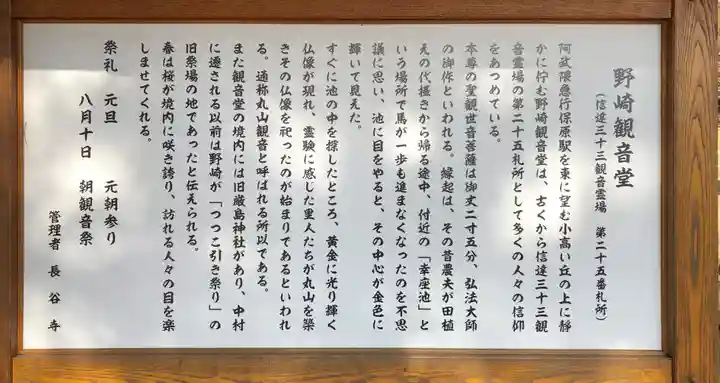 野崎観音堂
(信達三十三観音霊場　第二十五番札所)
阿武隈急行保原駅を東に望む小高い丘の上に静
かに佇む野崎観音堂は、古くから信達三十三観
音霊場の第二十五札所として多くの人々の信仰
をあつめている。
本尊の聖観世音菩薩は御丈二寸五分、弘法大師
の御作といわれる。縁起は、その昔農夫が田植
えの代掻きから帰る途中、付近の「幸座池」と
いう場所で馬が一歩も進まなくなったのを不思
議に思い、池に目をやると、その中心が金色に
輝いて見えた。
すぐに池の中を探したところ、黄金に光り輝く
仏像が現れ、霊験に感じた里人たちが丸山を築
きその仏像を祀ったのが始まりであるといわれ
る。通称丸山観音と呼ばれる所以である。
また観音堂の境内には旧厳島神社があり、中村
に遷される以前は野崎が「つつこ引き祭り」の
旧祭場の地であったと伝えられる。
春は桜が境内に咲き誇り、訪れる人々の目を楽
しませてくれる。
祭礼　元旦　元朝参り
八月十日　朝観音祭
管理者　長谷寺